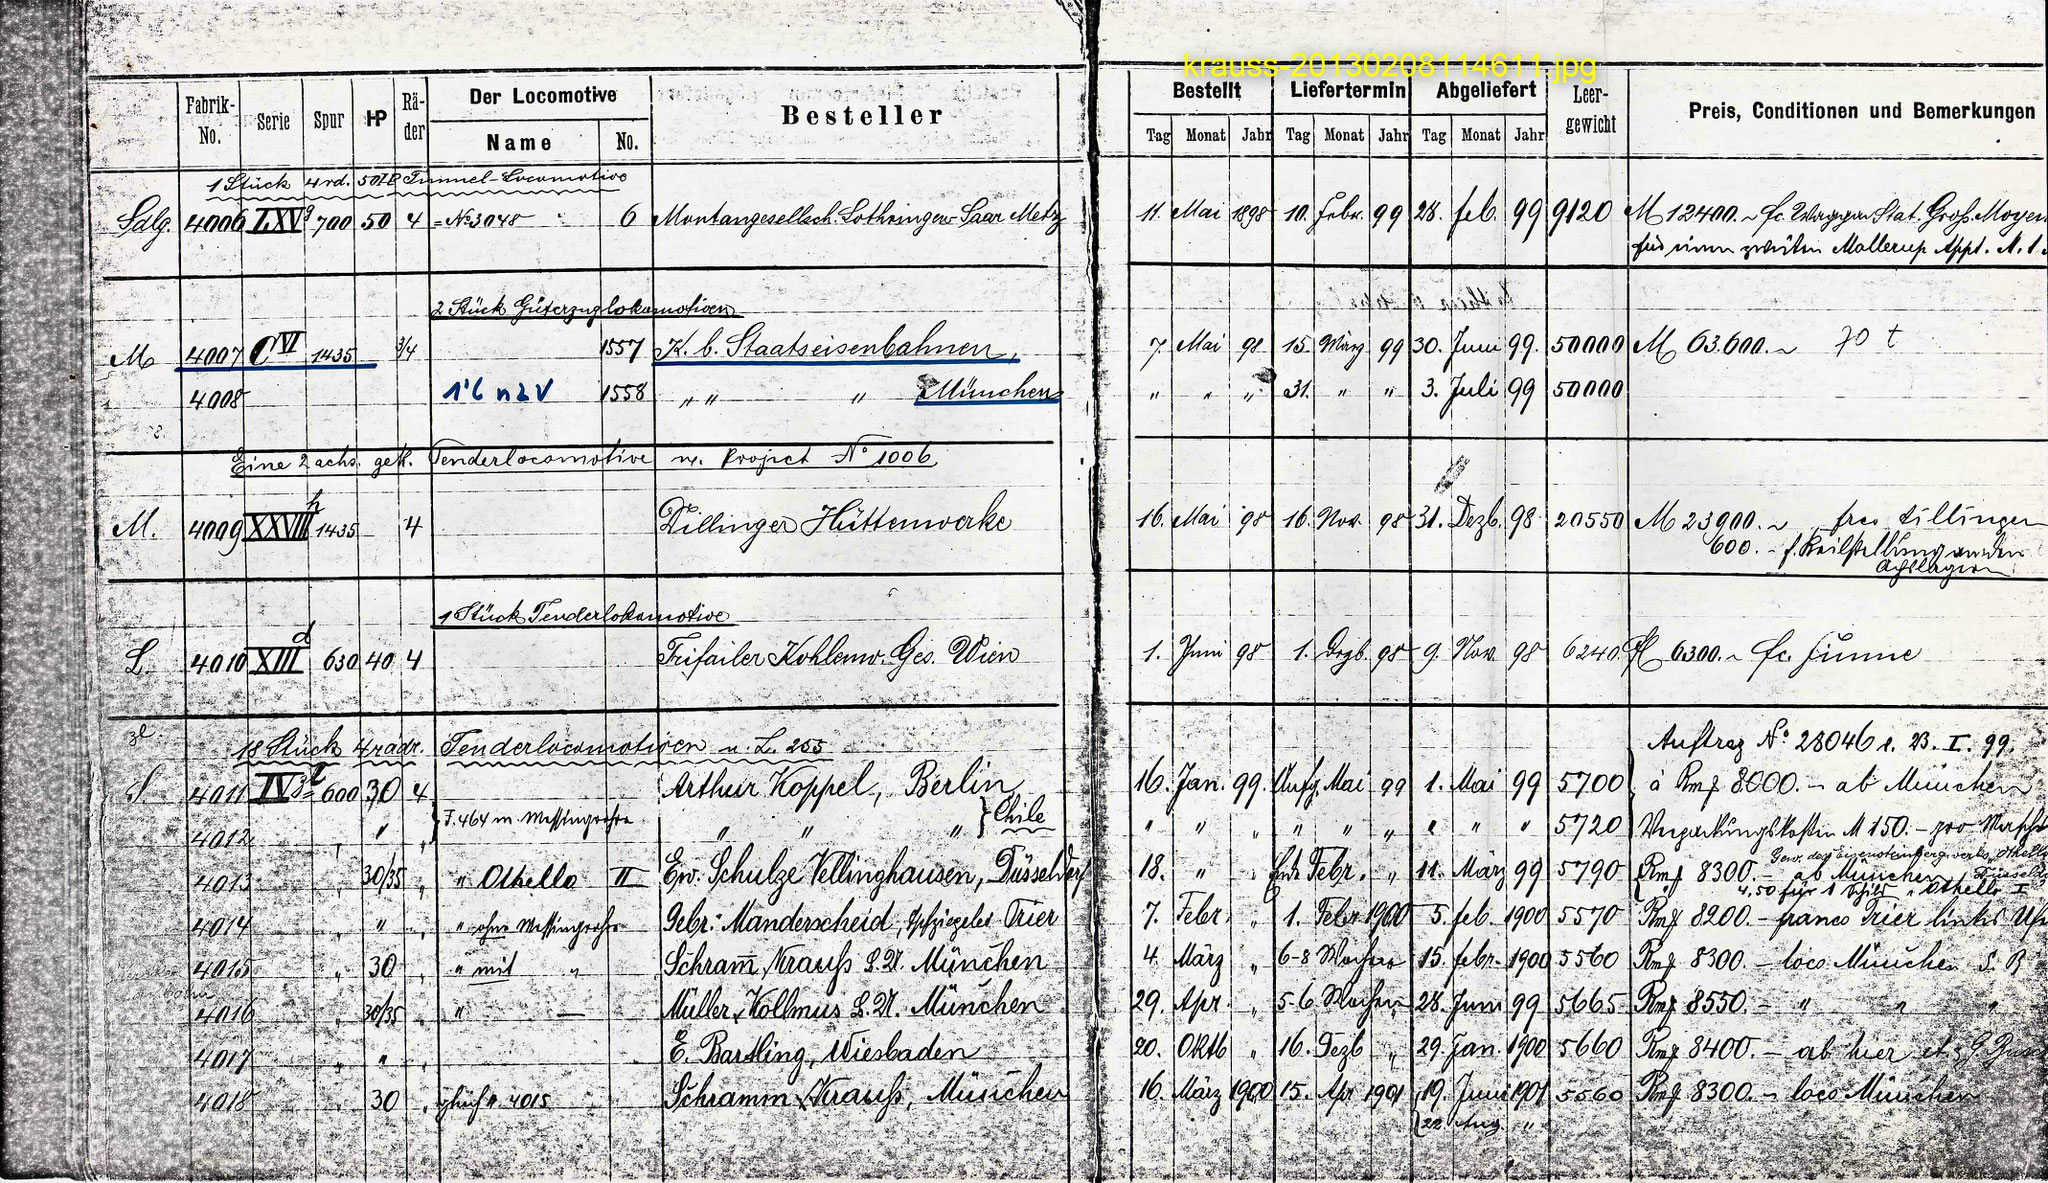 krauss-20130208114611.jpg
Fabrik-No. Serie Spur HP Rä-der Der Locomotive Name No. Besteller Bestellt Tag Monat Jahr Liefertermin Tag Monat Jahr Abgeliefert Tag Monat Jahr Leer-gewicht Preis, Conditionen und Bemerkungen
1 Stück 4 rd. 50 HP Tunnel-Locomotive
Salg. 4006 LXV 700 50 4 = No 3048 6 Montangesellsch. Lothringen-Saar Metz 11. Mai 1898 10. Febr. 99 28. feb. 99 9120 M 12400.- fc. Waggon Stat. Groß-Moyeu
für einen zweiten Mollerup Appt. M. 1.
2 Stück Güterzuglokomotiven
M 4007 C VI 1435 3/4 1557 K. b. Staatseisenbahnen, 7. Mai 98 15. März 99 30. Juni 99. 50000 M 63.600.- 70 t
4008 1'C n2v 1558 " " " München " " " 31. " " 3. Juli 99 50000
Eine 2 achs. gek. Tenderlocomotive n. Project No 1006
M. 4009 XXVIII h 1435 4 Dillinger Hüttenwerke 16. Mai 98 16. Nov. 98 31. Dezb. 98. 20550 M 23900.- free Dillingen
600.- f. Keilstellung an den
Achslagern
1 Stück Tenderlokomotive
L. 4010 XIII d 630 40 4 Trifailer Kohlenw. Ges. Wien 1. Juni 98 1. Dezb. 98 9. Nov. 98 6240 fl 6300.- fc.
18 Stück 4 rädr. Tenderlocomotiven n. L. 255 Auftrag No 28046 v. 23. I. 99.
S 4011 IV 600 30 4 Arthur Koppel, Berlin 16. Jan. 99. Anfg. Mai 99 1. Mai 99 5700 à Rmf 8000.- ab München
4012 " " " F. 464 m. Messingrohre " " " Chile " " " " " " " " " 5720 Verpackungskosten M 150.- pro Masch
Gew. des Eisensteinbergwerks Othello
4013 " 30/35 " " Othello II Ew. Schulze Vellinghausen, Düsseldorf 18. " " Ende Febr. " 11. März 99 5790 Rmf 8300.- ab München Düsseldorf
4.50 für 1 Schild " Othello I"
4014 " " " " ohne Messingrohre Gebr. Manderscheid, Trier 7. Febr. " 1. Febr 1900 5. feb. 1900 5570 Rmf 8200.- franco Trier links Ufer
4015 " 30 " " mit " Schramm & Krauss L.V. München 4. März " 6-8 Wochen 15. febr. 1900 5560 Rmf 8300.- loco München S. B
4016 " 30/35 " " — Müller & Kollmus L.V. München 29. Apr. " 5-6 Wochen 28. Juni 99 5665 Rmf 8550.- " " "
4017 " " " E. Bartling, Wiesbaden 20. Oktb " 16. Dezb " 29. Jan. 1900 5660 Rmf 8400.- ab hier
4018 " 30 " gleich " 4015 Schramm & Krauss, München 16. März 1900 15. Apr 1901 19. Juni 1901 5560 Rmf 8300.- loco München
22 Aug. "